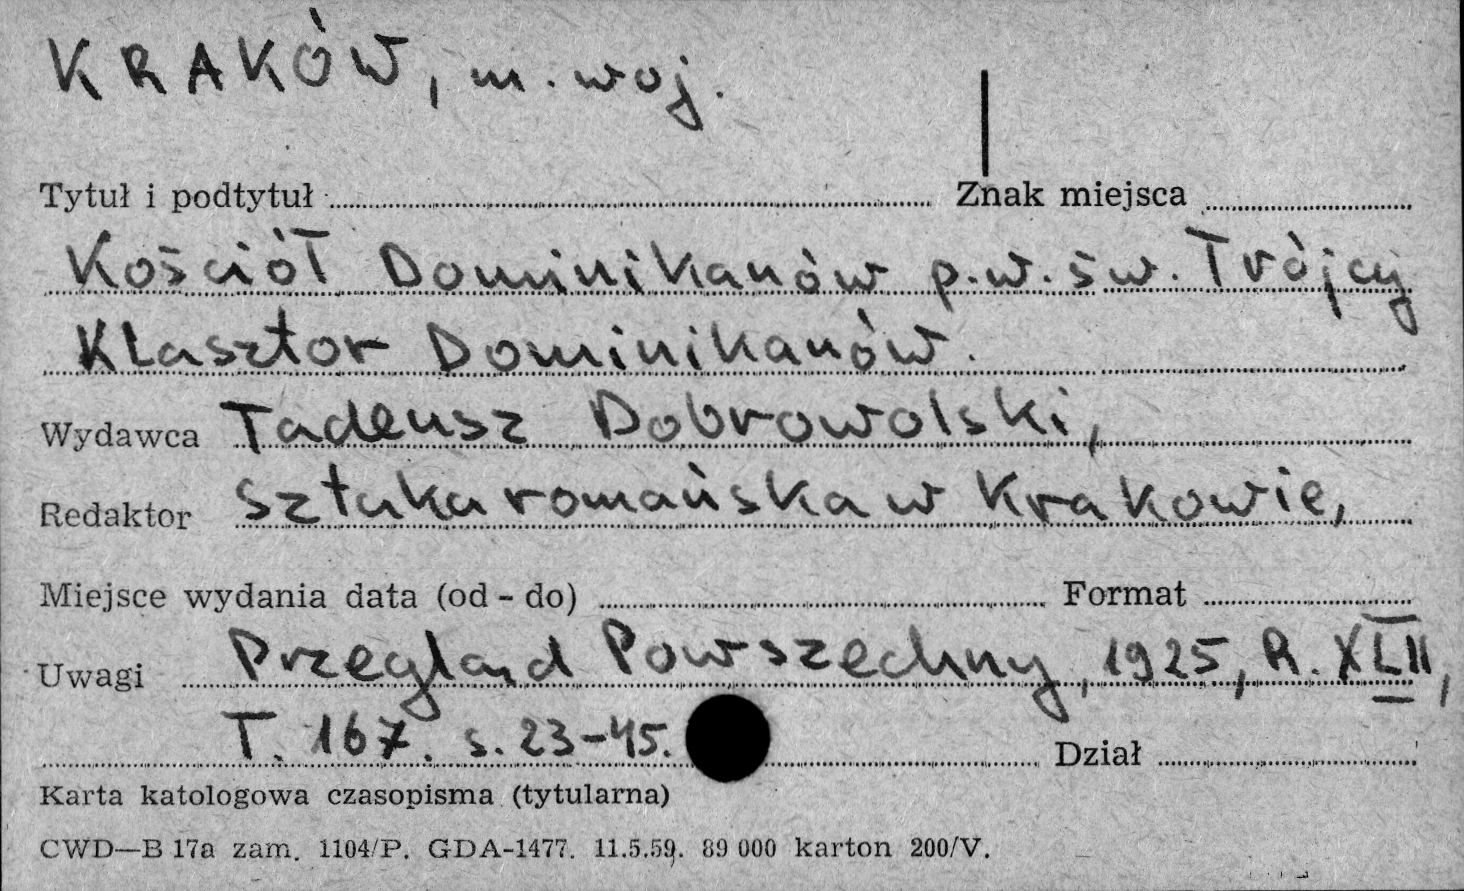 KRAKÓW, m. woj.
Tytuł i podtytuł Znak miejsca
Kościół Dominikanów p.w. św. Trójcy
Klasztor Dominikanów.
Wydawca Tadeusz Dobrowolski,
Redaktor Sztuka romańska w Krakowie,
Miejsce wydania data (od - do) Format
Uwagi Przegląd Powszechny, 1925, R. XLII,
T. 167. s. 23-45. Dział
Karta katologowa czasopisma (tytularna)
CWD—B 17a zam. 1104/P. GDA-1477. 11.5.59. 89 000 karton 200/V.